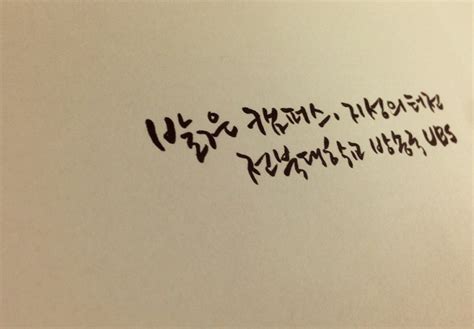 밝은 캠퍼스, 지성의 터전
전북대학교 방송국 UBS